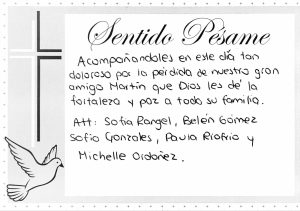 Sentido Pésame
Acompañandoles en este día tan
doloroso por la pérdida de nuestro gran
amigo Martín que Dios les de´ la
fortaleza y paz a toda su familia.
Att: Sofia Rangel, Belén Gómez
Sofia Gonzales, Paula Riofrio y
Michelle Ordoñez.